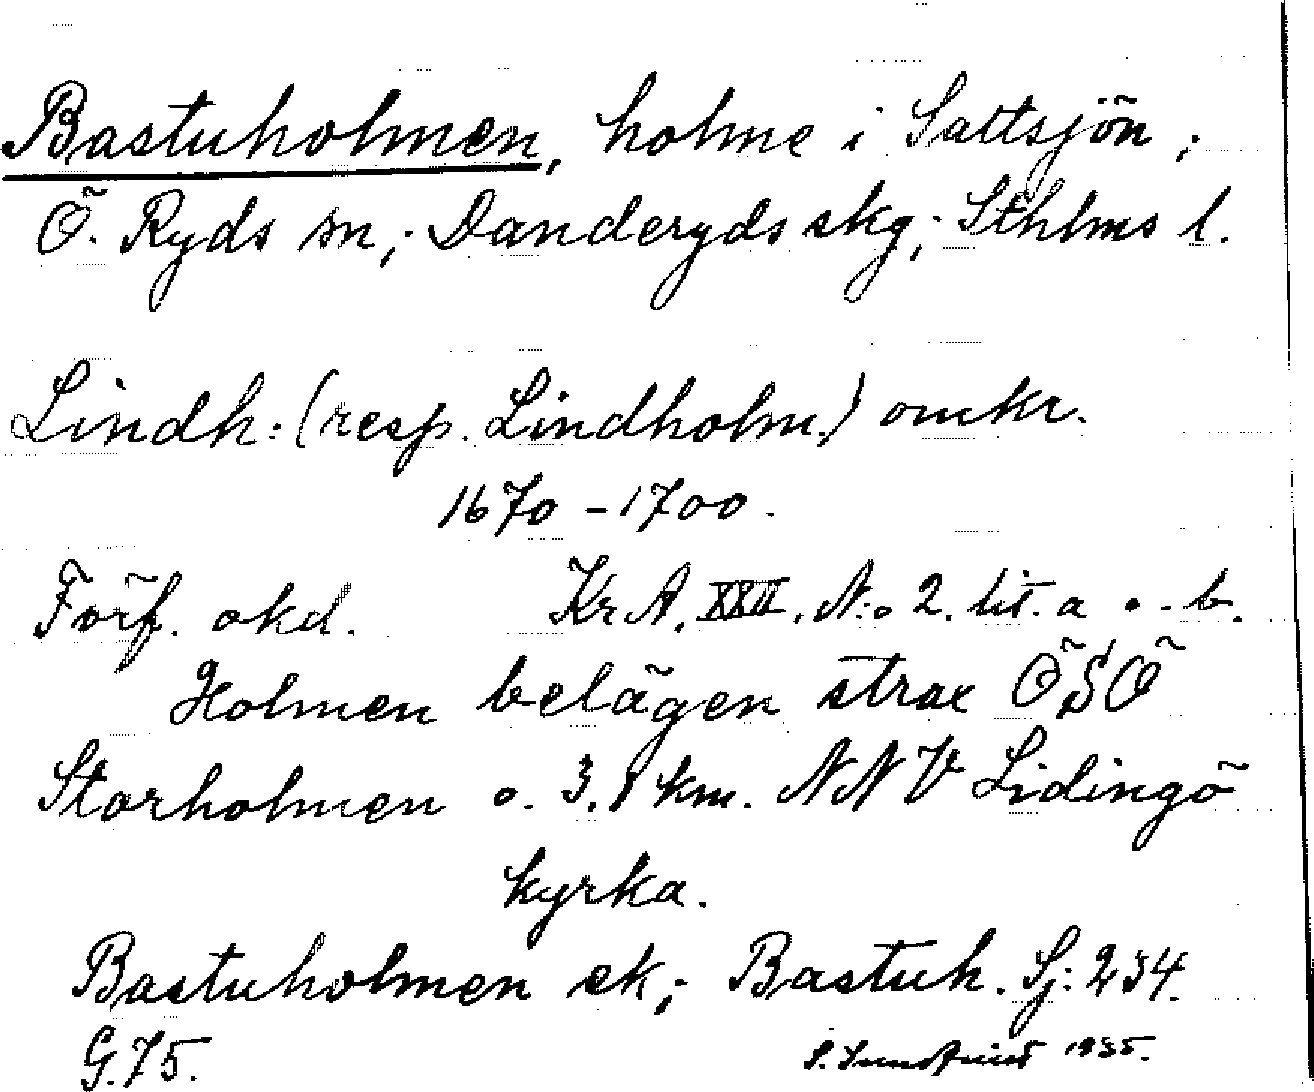 Bastuholmen, holme i Saltsjön;
Ö. Ryds sn; Danderyds skg; Sthlms l.
Lindh: (resp. Lindholm,) omkr.
1670-1700.
Förf. okd. Kr A. XXII. N:o 2. lit. a o. b.
Holmen belägen strax ÖSÖ
Storholmen o. 3,8 km. NNV Lidingö
kyrka.
Bastuholmen ek; Bastuh. Sj: 234.
G. 75. 1935.